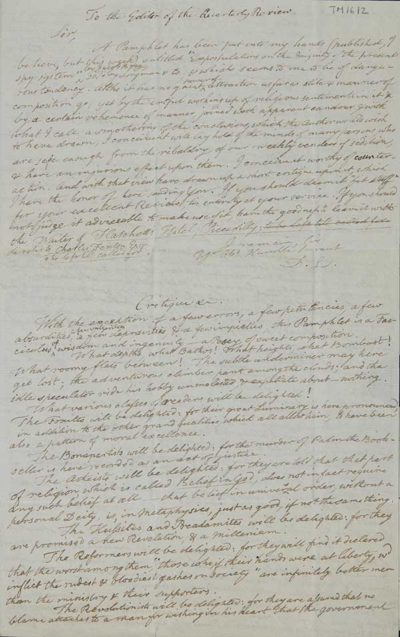 To the Editor of the Quarterly Review.
TM1612
Sir,
A Pamphlet has been put into my hands (published, I
believe, but
entitled Expostulation on the present
spy system
seems to me to be of dange-
rous tendency. Altho' it has no great attraction as far as style & manner of
composition go, yet by the artful
of religious sentiment in it &
by a certain vehemence of manner, joined with apparent candour & with
what I call a smothering of the conclusions which the author would wish
to have drawn, I conceive it will
of the minds of many persons who
are safe enough from the ribaldry of our weekly venders of sedition,
& have an injurious effect upon them. I conceive it worthy of counter-
action, and with that view have drawn up a short critique upon it, which
I have the honor of here sending You. If you should deem it
for your excellent Review it is entirely at your service. If you should
not judge it adviseable to make use of it have the goodness to leave it with
the Waiter of Hatchett's Hotel, Piccadilly,
I remain, Sir,
Yr. Obt. Humble Servant
Critique &c.
With the exception of a few errors, a few petulancies, a few
absurdities,
& a few impieties this Pamphlet is a Fas-
ciculus of wisdom and ingenuity – a Posey of sweet composition.
What depths, what Bathos! What heights, what Bombast!
What roomy flats between! The subtle underminer may here
get lost; the adventurous climber pant among the clouds; and the
idle speculator ride his hobby unmolested & expatiate about – nothing.
What various classes of readers will be delighted!
The Foxites will be delighted: for their great Luminary is here pronounced
in addition to the other grand qualities which all allot him, to have been
also a pattern of moral excellence.
The Bonapartists will be delighted: for the murder of Palm the Book-
seller is here recorded as an act of justice.
The Atheists will be delighted: for they are told that that part
of religion which is called Belief in God, does not in fact require
any such belief at all – that belief in universal order without a
personal Deity, is, in Metaphysics, just as good, if not the same thing.
The
and Preadamites will be delighted: for they
are promised a new Revelation & a Millennium.
The Reformers will be delighted: for they will find it declared
that the worst among them, those who, if their hands were at liberty, wd
inflict the rudest & bloodiest gashes on society are infinitely better men
than the ministry & their supporters.
The Revolutionists will be delighted: for they are assured that no
blame attaches to a man for wishing in his heart that the government